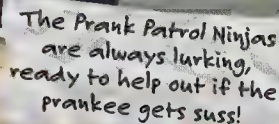 The Prank Patrol Ninjas
are always lurking,
ready to help out if the
prankee gets suss!